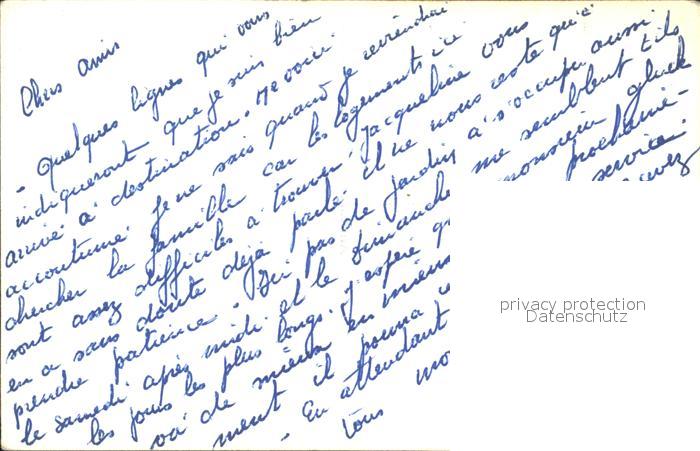 Chers amis
- Quelques lignes qui vous
indiqueront que je suis bien
arrivé à destination. Me voici
accoutumé. Je ne sais quand je reviendrai
chercher la famille car les logements ici
sont assez difficiles à trouver. Jacqueline vous
en a sans doute déjà parlé. Il ne nous reste qu'à
prendre patience. Ici pas de jardin à s'occuper aussi
le samedi après midi et le dimanche me semblent t'ils
les jours les plus longs. J'espère monsieur Gluck
va de mieux en mieux prochaine-
ment il pourra service.
- En attendant avez
tous
privacy protection
Datenschutz